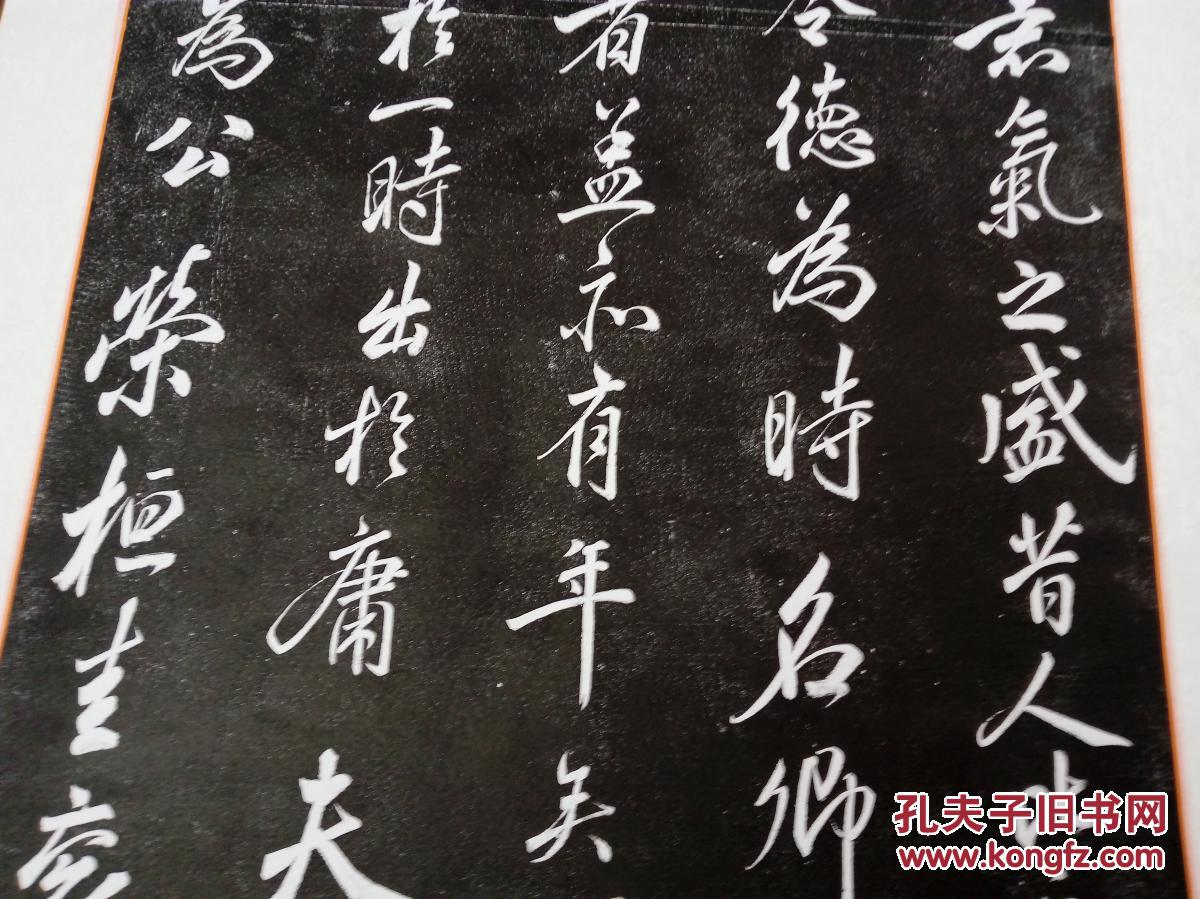 意氣之盛昔人比
令德為時名卿
者蓋亦有年矣
於一時出於庸夫
為公榮桓圭袞
孔夫子旧书网
www.kongfz.com